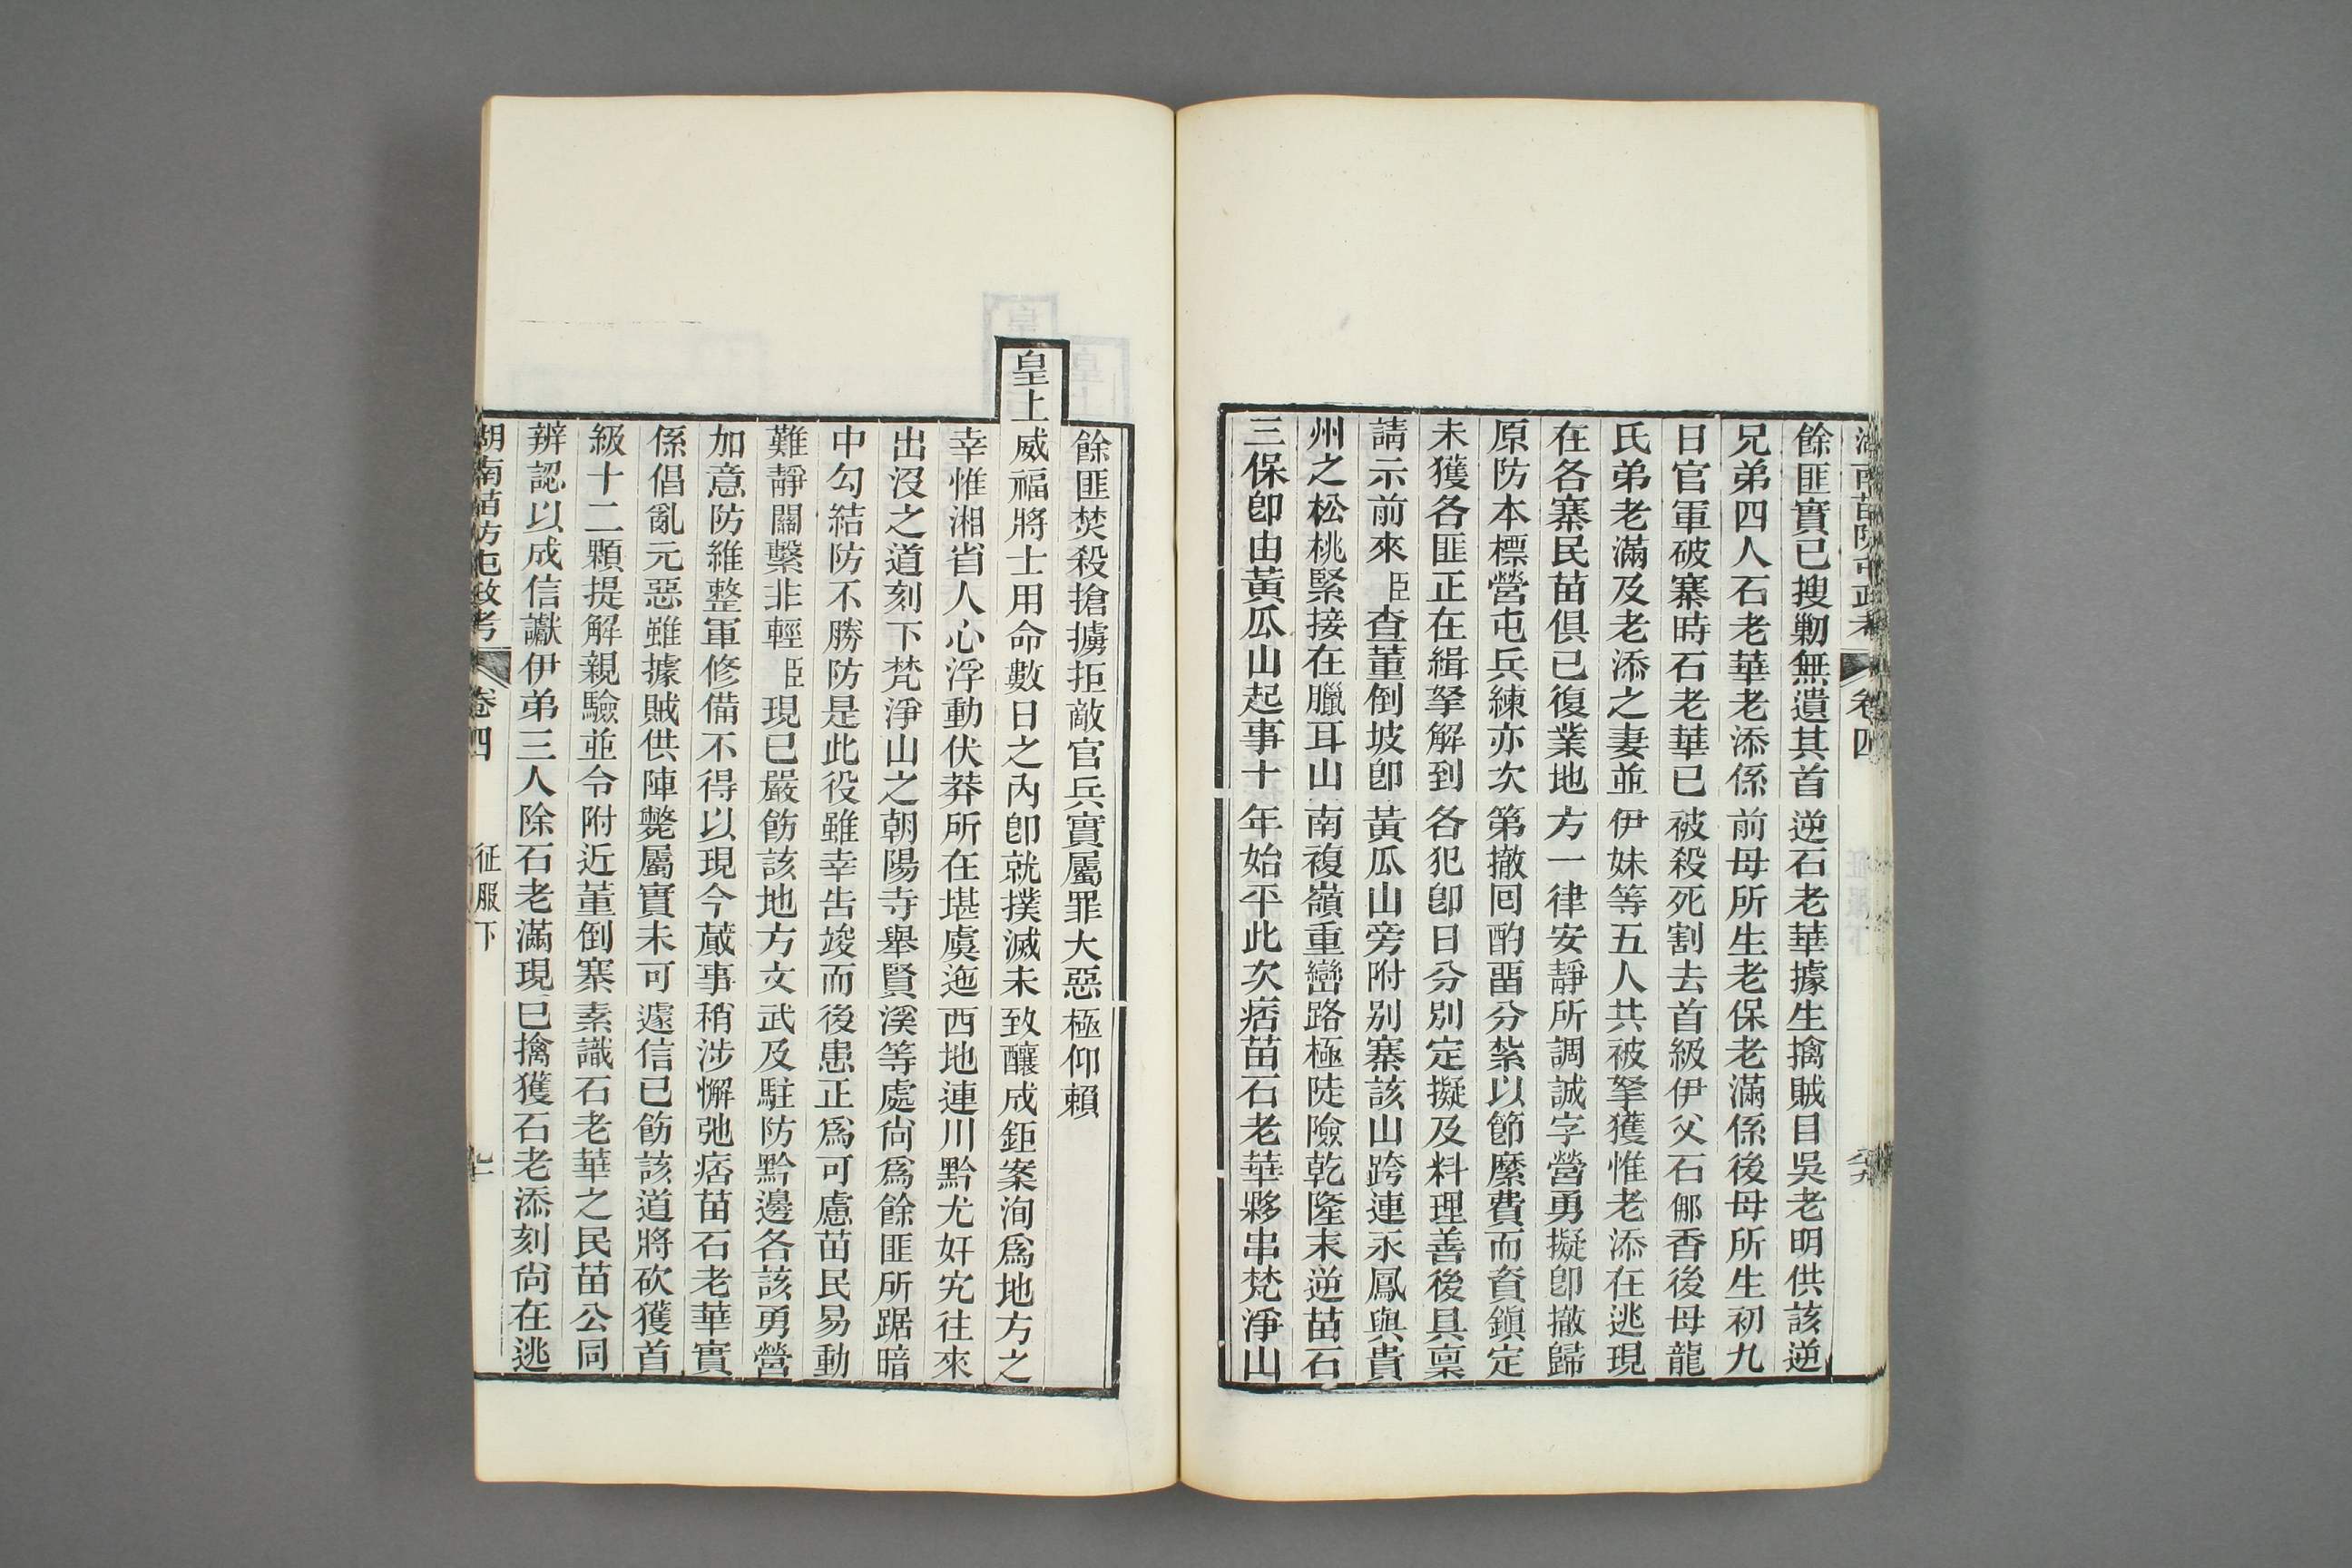 湖南苗防屯政考 卷四 六九
餘匪實已搜勦無遺其首逆石老華據生擒賊目吳老明供該逆
兄弟四人石老華老添係前母所生老保老滿係後母所生初九
日官軍破寨時石老華已被殺死割去首級伊父石𨚗香後母龍
氏弟老滿及老添之妻並伊妹等五人共被拏獲惟老添在逃現
在各寨民苗俱已復業地方一律安靜所調誠字營勇擬卽撤歸
原防本標營屯兵練亦次第撤回酌畱分紮以節縻費而資鎭定
未獲各匪正在緝拏解到各犯卽日分別定擬及料理善後具稟
請示前來臣查董倒坡卽黃瓜山旁附别寨該山跨連永鳳與貴
州之松桃緊接在臘耳山南複嶺重巒路極陡險乾隆末逆苗石
三保卽由黃瓜山起事十年始平此次痞苗石老華夥串梵淨山
餘匪焚殺搶擄拒敵官兵實屬罪大惡極仰賴
皇上威福將士用命數日之內卽就撲滅未致釀成鉅案洵爲地方之
幸惟湘省人心浮動伏莽所在堪虞迤西地連川黔尤奸宄往來
出沒之道刻下梵淨山之朝陽寺舉賢溪等處尙爲餘匪所踞暗
中勾結防不勝防是此役雖幸告竣而後患正爲可慮苗民易動
難靜關繫非輕臣現已嚴飭該地方文武及駐防黔邊各該勇營
加意防維整軍修備不得以現今蕆事稍涉懈弛痞苗石老華實
係倡亂元惡雖據賊供陣斃屬實未可遽信已飭該道將砍獲首
級十二顆提解親驗並令附近董倒寨素識石老華之民苗公同
辨認以成信讞伊弟三人除石老滿現已擒獲石老添刻尙在逃
湖南苗防屯政考 卷四 征服下